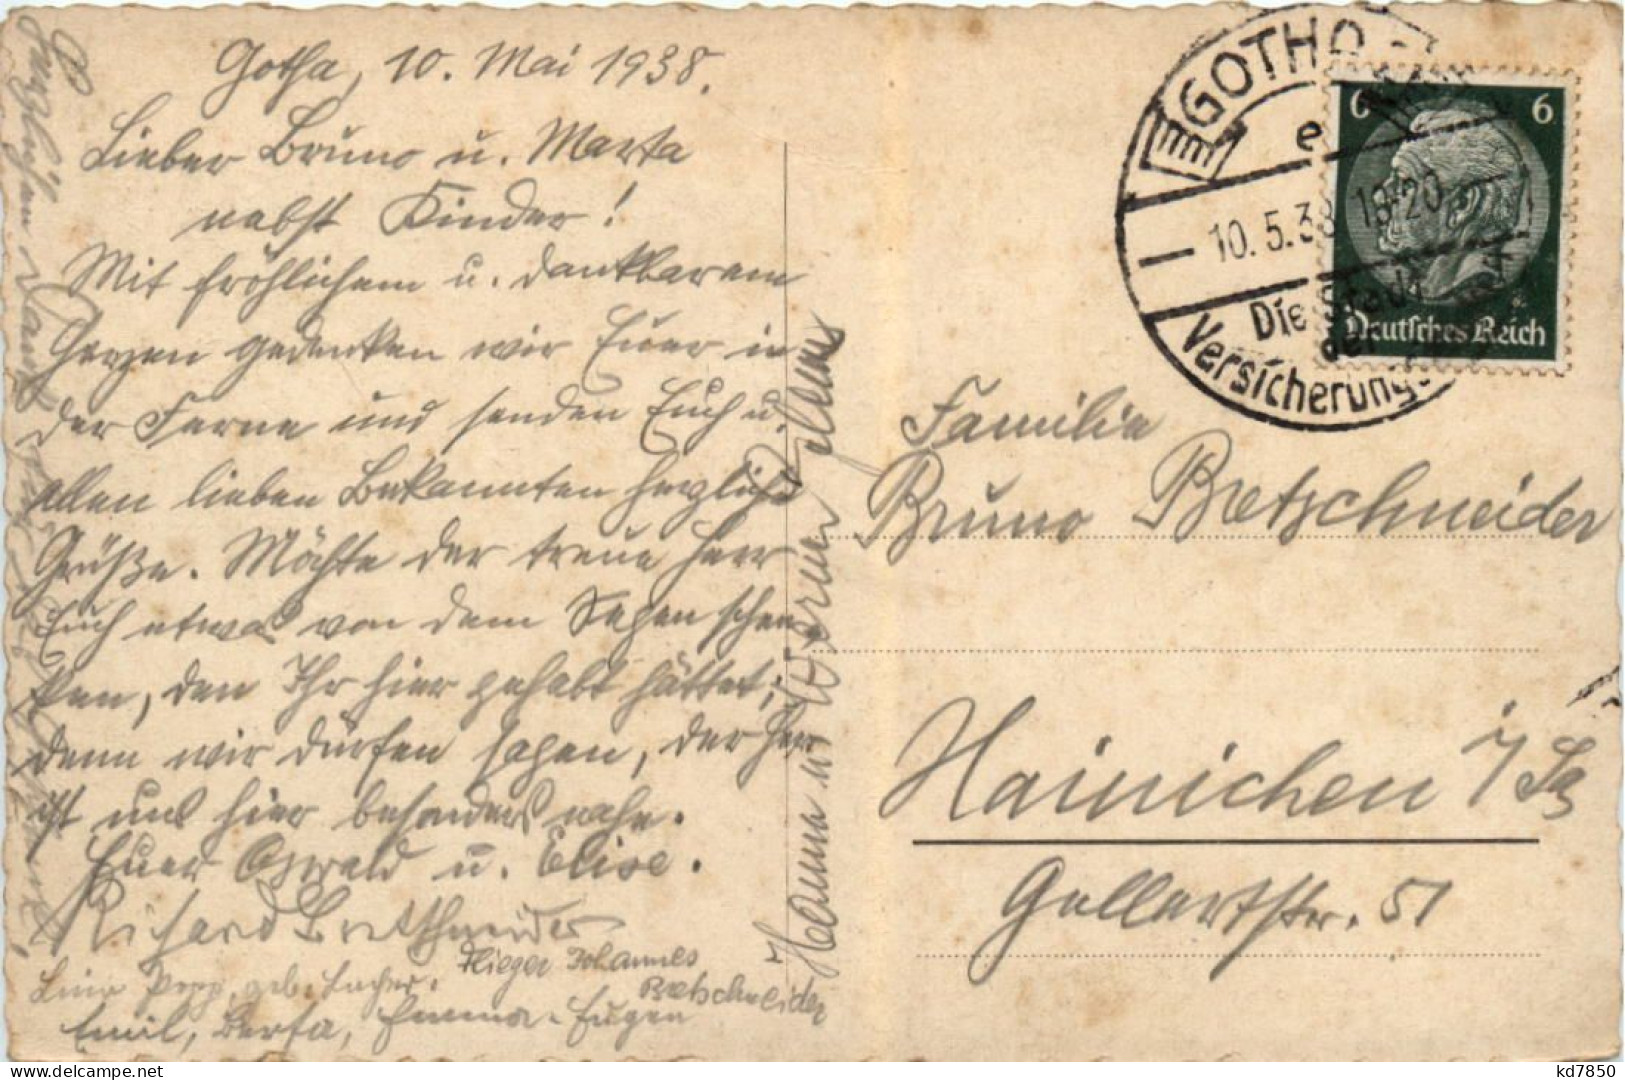 Gotha, 10. Mai 1938.
Lieber Bruno u. Marta
nebst Kinder!
Mit fröhlichem u. dankbarem
Herzen gedenken wir Euer in
der Ferne und senden Euch u.
allen lieben Bekannten herzliche
Grüße. Möchte der treue Herr
Euch etwas von dem Segen schen-
ken, den Ihr hier gehabt hättet;
denn wir dürfen sagen, der Herr
ist uns hier besonders nahe.
Euer Oswald u. Elise.
Richard Bretschneider
Lina Popp, geb.
Flieger Johannes
Bretschneider
Emil, Berta, Emma. Eugen
Herzlichen Dank
Hanna u. Werner
GOTHA
10.5.38 18-20
Die Stadt
Versicherung
6 6
Deutsches Reich
Familie
Bruno Bretschneider
Hainichen i/Sa
Gellertstr. 51
kd7850